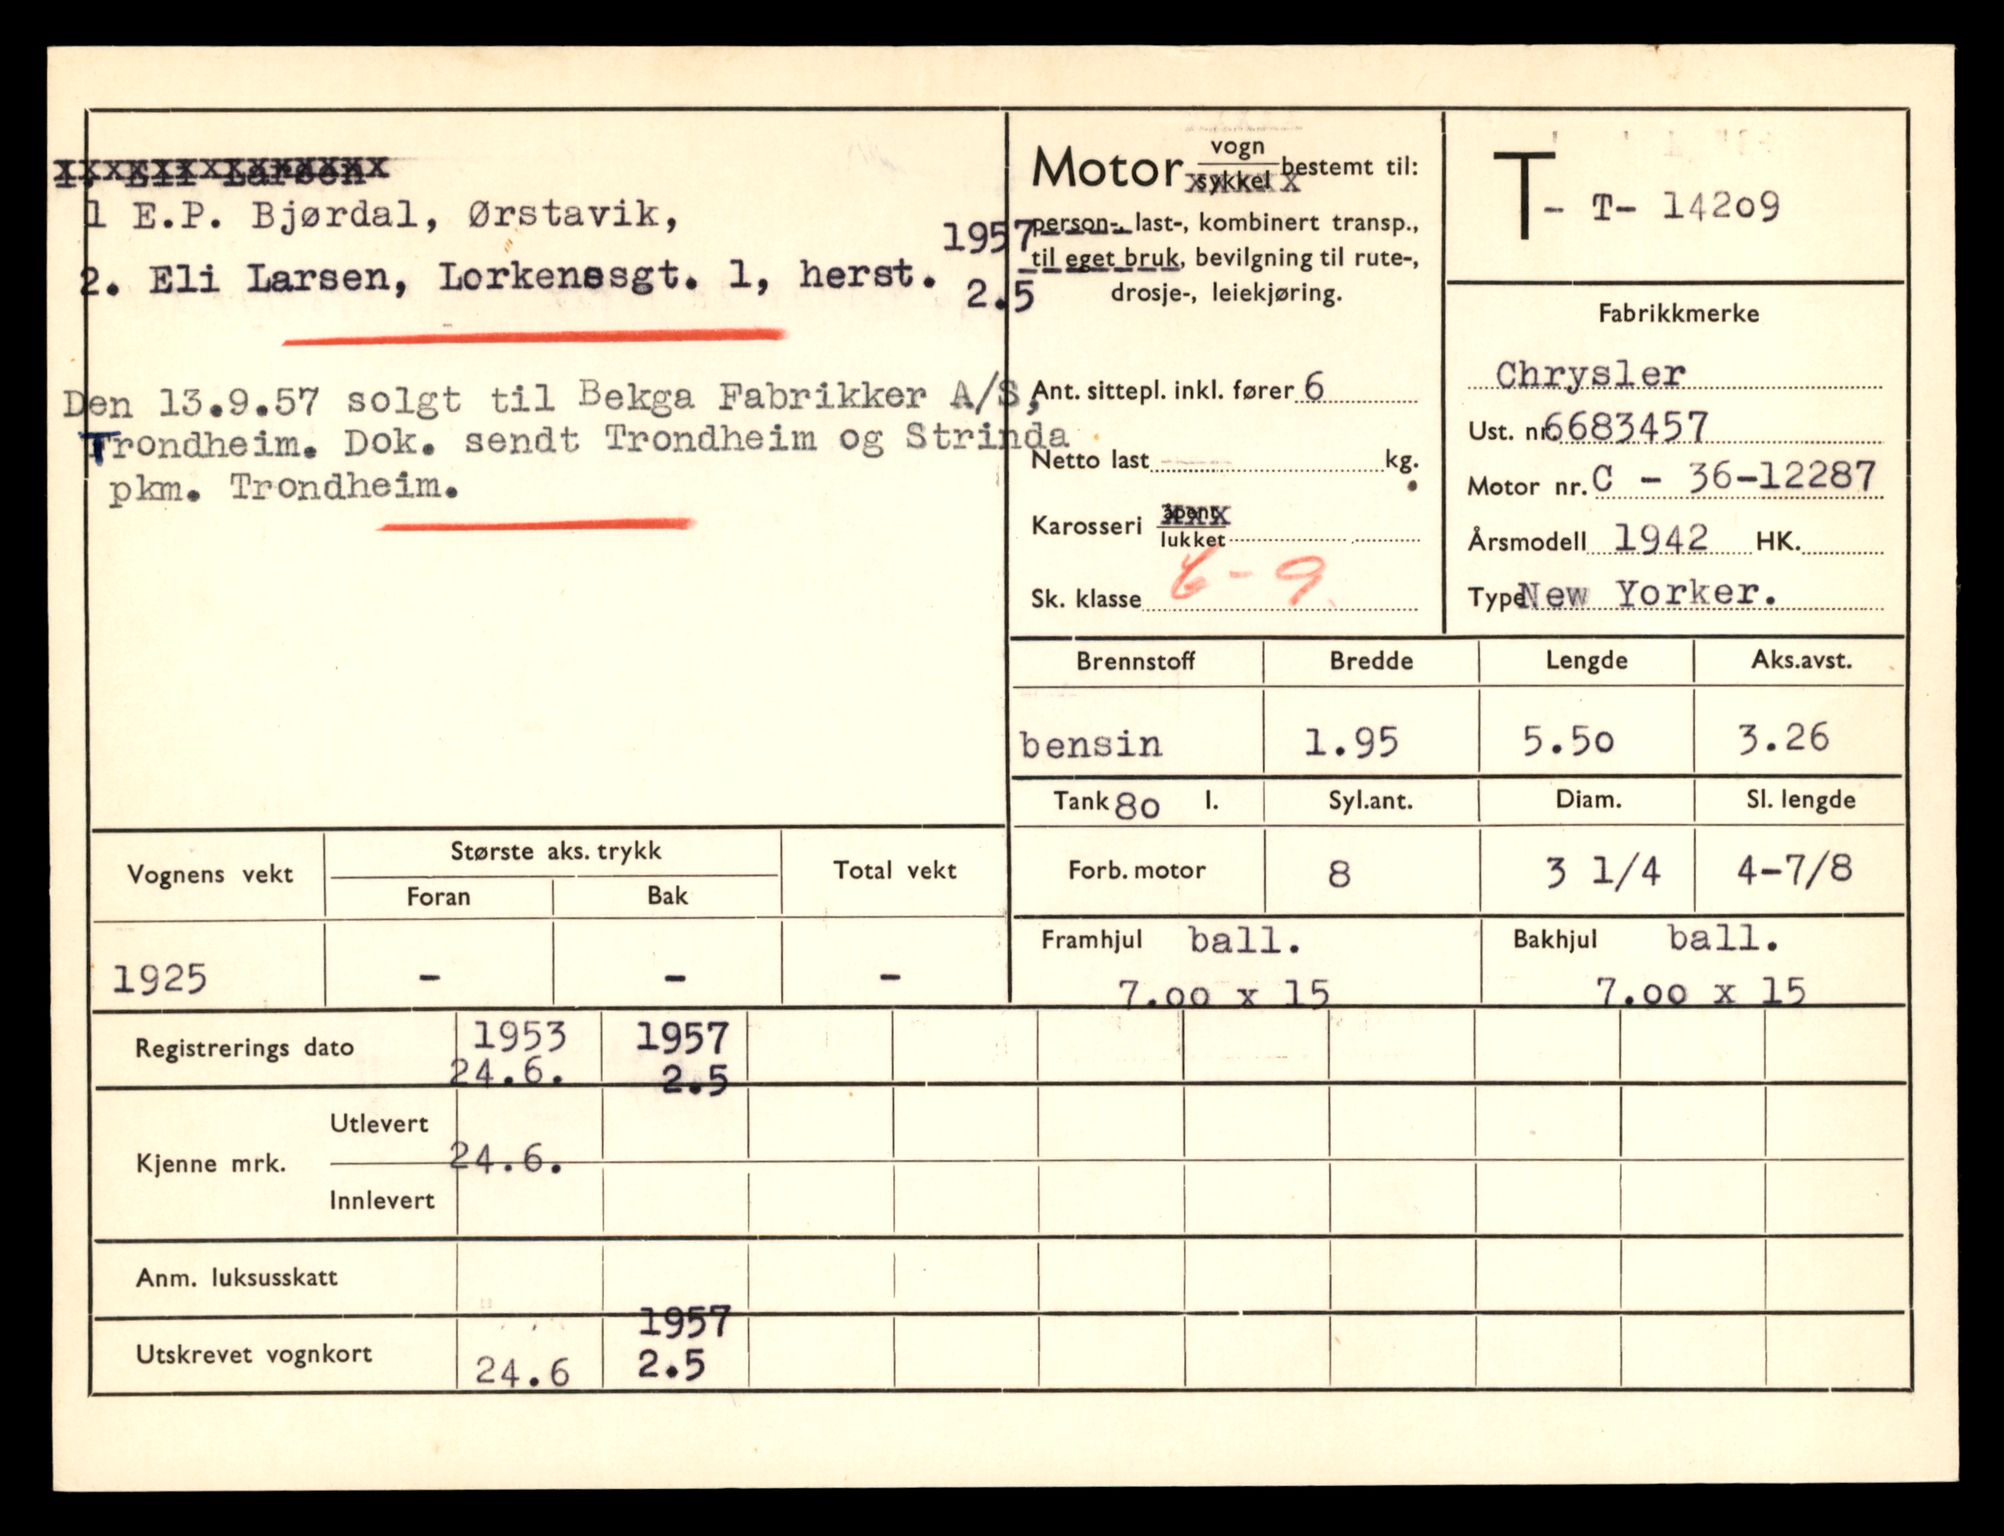 1. Eli Larsen
1 E.P. Bjørdal, Ørstavik,
1957
2. Eli Larsen, Lorkenesgt. 1, herst. 2.5
Den 13.9.57 solgt til Bekga Fabrikker A/S,
Trondheim. Dok. sendt Trondheim og Strinda
pkm. Trondheim.
Motor vogn/sykkel bestemt til:
person-, last-, kombinert transp.,
til eget bruk, bevilgning til rute-,
drosje-, leiekjøring.
Ant. sittepl. inkl. fører 6
Netto last kg.
Karosseri åpent/lukket
Sk. klasse 6-9
T - T- 14209
Fabrikkmerke
Chrysler
Ust. nr. 6683457
Motor nr. C - 36-12287
Årsmodell 1942 HK.
Type New Yorker.
Brennstoff Bredde Lengde Aks.avst.
bensin 1.95 5.50 3.26
Tank 80 l. Syl.ant. Diam. Sl. lengde
Forb. motor 8 3 1/4 4-7/8
Framhjul ball. Bakhjul ball.
7.00 x 15 7.00 x 15
Vognens vekt Største aks. trykk Total vekt
Foran Bak
1925 - - -
Registrerings dato 1953 1957
24.6. 2.5
Utlevert
Kjenne mrk. 24.6.
Innlevert
Anm. luksusskatt
1957
Utskrevet vognkort 24.6 2.5